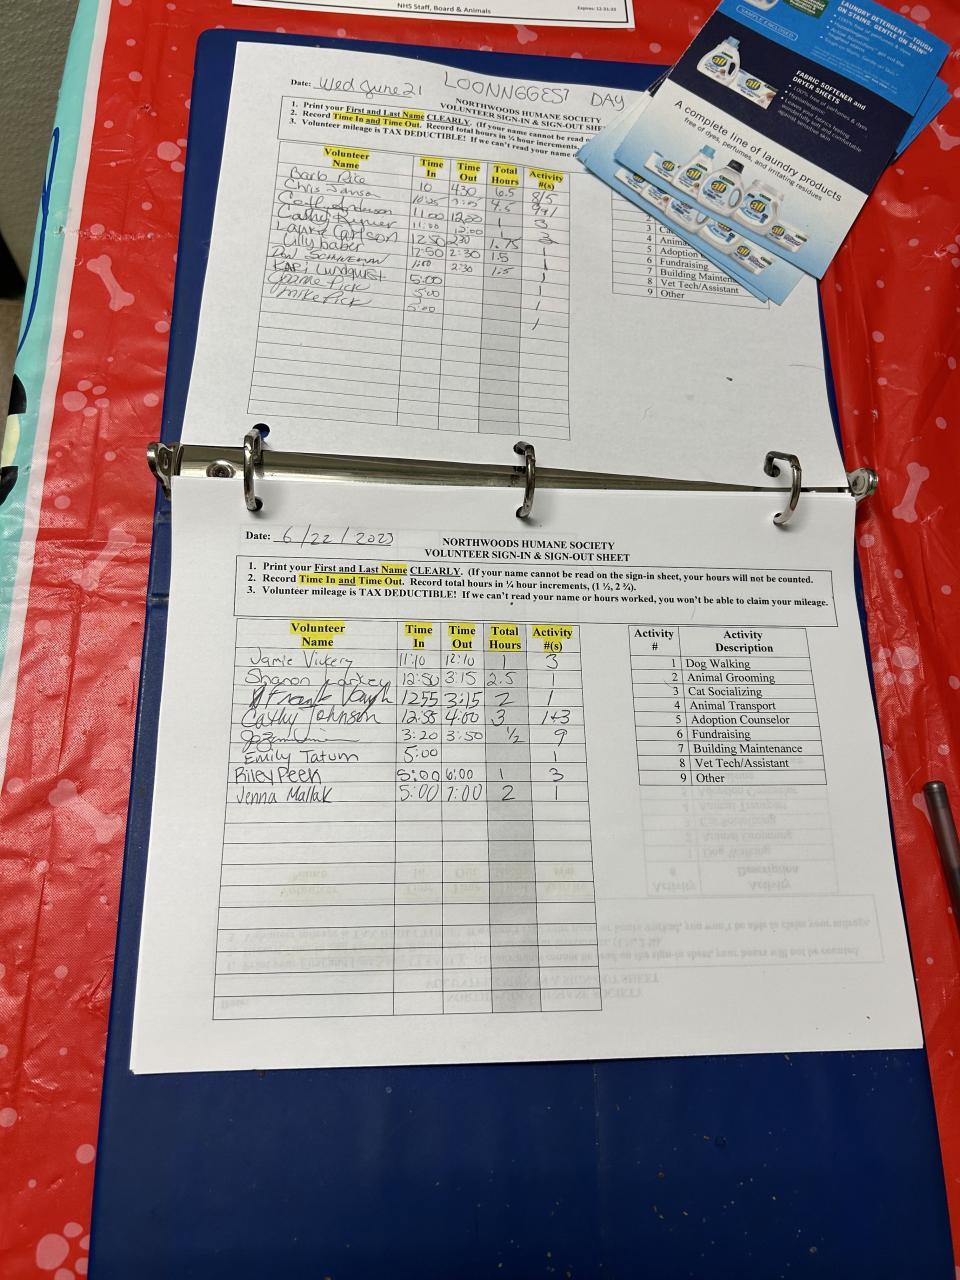 NHS Staff, Board & Animals
Expires: 12-31-23
LAUNDRY DETERGENT—TOUGH
ON STAINS, GENTLE ON SKIN
SAMPLE ENCLOSED
FABRIC SOFTENER and
DRYER SHEETS
• 100% free of perfumes & dyes
• Hypoallergenic
A complete line of laundry products
free of dyes, perfumes, and irritating residues
all
Date: Wed June 21 LOONNGGEST DAY
NORTHWOODS HUMANE SOCIETY
VOLUNTEER SIGN-IN & SIGN-OUT SHE
1. Print your First and Last Name CLEARLY. (If your name cannot be read o
2. Record Time In and Time Out. Record total hours in ¼ hour increments,
3. Volunteer mileage is TAX DEDUCTIBLE! If we can't read your name
Volunteer Time Time Total Activity
Name In Out Hours #(s)
Barb Rice 10 430 6.5 8/5
Chris 4.5
11:00 12:00 1 3
Cathy 11:00 12:00
Laurie Carlson 1250 230 1.75
Lilly Baber 12:50 2:30 1.5 1
1:00 2:30 1.5 1
Kari Lundquist 5:00 1
Pick 5:00 1
Mike Pick 5:00 1
3 Ca
4 Anima
5 Adoption
6 Fundraising
7 Building Mainten
8 Vet Tech/Assistant
9 Other
Date: 6/22/2023
NORTHWOODS HUMANE SOCIETY
VOLUNTEER SIGN-IN & SIGN-OUT SHEET
1. Print your First and Last Name CLEARLY. (If your name cannot be read on the sign-in sheet, your hours will not be counted.
2. Record Time In and Time Out. Record total hours in ¼ hour increments, (1 ½, 2 ¾).
3. Volunteer mileage is TAX DEDUCTIBLE! If we can't read your name or hours worked, you won't be able to claim your mileage.
Volunteer Time Time Total Activity
Name In Out Hours #(s)
Jamie Vickery 11:10 12:10 1 3
Sharon Larkey 12:50 3:15 2.5 1
Frank 1255 3:15 2 1
Cathy Johnson 12:55 4:00 3 1+3
3:20 3:50 ½ 9
Emily Tatum 5:00 1
Riley Peek 5:00 6:00 1 3
Jenna Mallak 5:00 7:00 2 1
Activity Activity
# Description
1 Dog Walking
2 Animal Grooming
3 Cat Socializing
4 Animal Transport
5 Adoption Counselor
6 Fundraising
7 Building Maintenance
8 Vet Tech/Assistant
9 Other